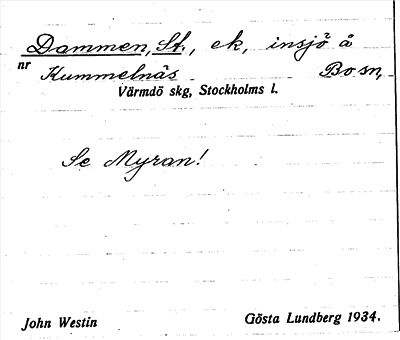 Dammen, St., ek, insjö å
nr Kummelnäs Bo sn,
Värmdö skg, Stockholms l.
Se Myran!
John Westin Gösta Lundberg 1934.